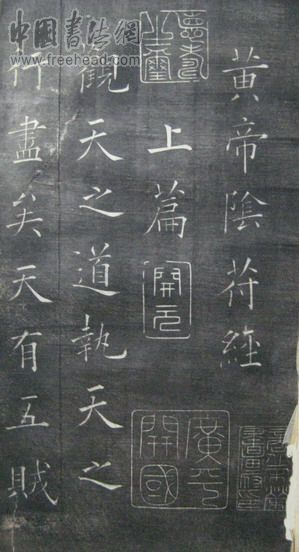 黄帝陰符經
上篇
觀天之道執天之
行盡矣天有五賊
開元
廣平
開國
中國書法網
www.freehead.com